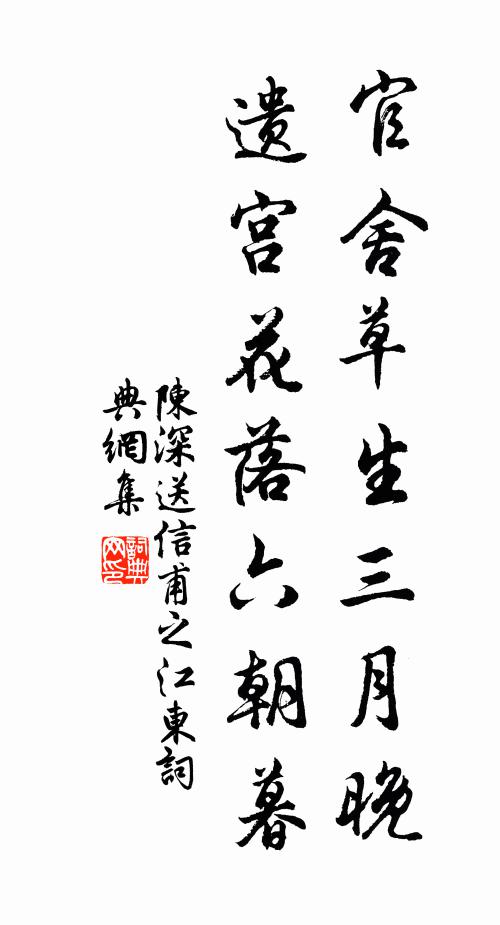 官舍草生三月晚
遗宫花落六朝暮
陳深送信甫之江東詞
典網集
詞典
网印